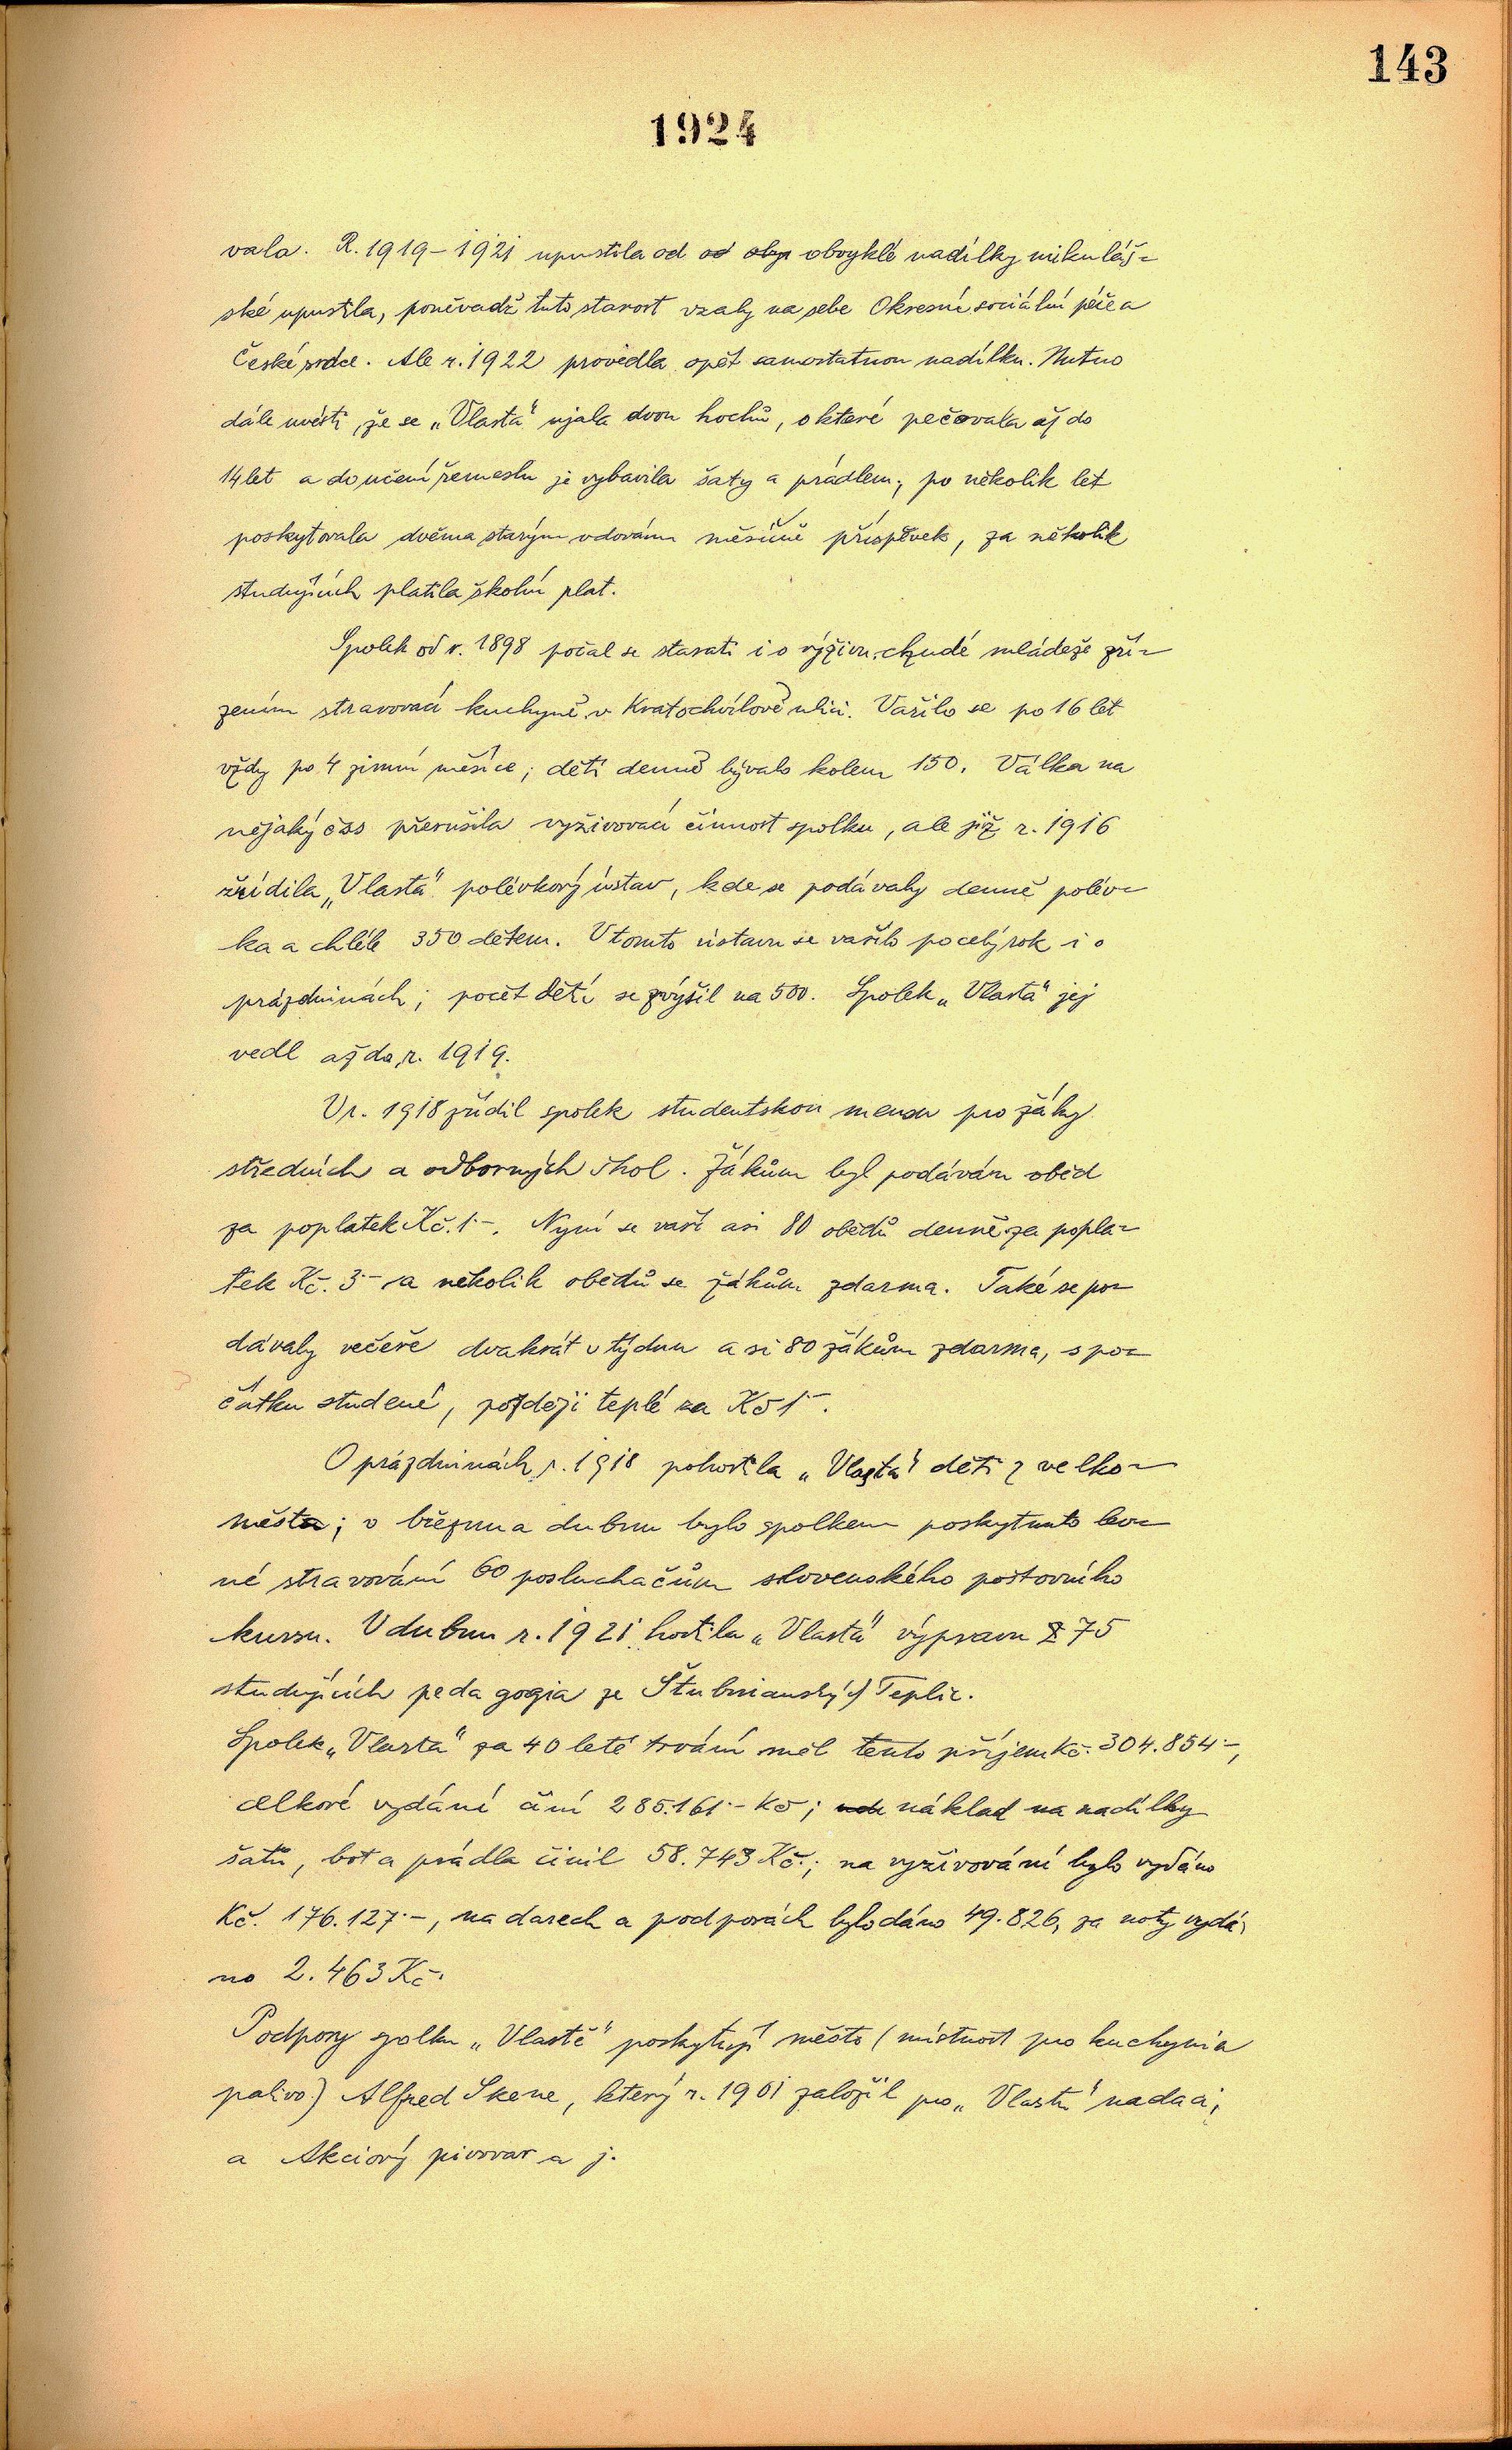 143
1924
vala. R. 1919–1921 upustila od od obyc obvyklé nadílky mikuláš-
ské upustila, poněvadž tuto starost vzaly na sebe Okresní sociální péče a
České srdce. Ale r. 1922 provedla opět samostatnou nadílku. Nutno
dále uvésti, že se „Vlasta" ujala dvou hochů, o které pečovala až do
14 let a do učení řemeslu je vybavila šaty a prádlem, po několik let
poskytovala dvěma starým vdovám měsíčně příspěvek, za několik
studujících platila školní plat.
Spolek od r. 1898 počal se starati i o výživu chudé mládeže zří-
zením stravovací kuchyně v Kratochvílově ulici. Vařilo se po 16 let
vždy po 4 zimní měsíce; dětí denně bývalo kolem 150. Válka na
nějaký čas přerušila vyživovací činnost spolku, ale již r. 1916
zřídila „Vlasta" polévkový ústav, kde se podávaly denně polév-
ka a chléb 350 dětem. V tomto ústavu se vařilo po celý rok i o
prázdninách; počet dětí se zvýšil na 500. Spolek „Vlasta" jej
vedl až do r. 1919.
V r. 1918 zřídil spolek studentskou mensu pro žáky
středních a odborných škol. Žákům byl podáván oběd
za poplatek Kč. 1·–. Nyní se vaří asi 80 obědů denně za popla-
tek Kč. 3·– a několik obědů se žákům zdarma. Také se po-
dávaly večeře dvakrát v týdnu asi 80 žákům zdarma, s po-
čátku studené, později teplé za Kč 1·–.
O prázdninách r. 1918 pohostila „Vlasta" děti z velko-
města; v březnu a dubnu bylo spolkem poskytnuto lev-
né stravování 60 posluchačům slovenského poštovního
kursu. V dubnu r. 1921 hostila „Vlasta" výpravu z 75
studujících pedagogia ze Štubnianských Teplic.
Spolek „Vlasta" za 40 leté trvání měl tento příjem Kč. 304.854·–,
celkové vydání činí 285.161·– Kč; náklad na nadílky
šatů, bot a prádla činil 58.743 Kč.; na vyživování bylo vydáno
Kč. 176.127·–, na darech a podporách bylo dáno 49.826, za noty vydá-
no 2.463 Kč.
Podpory spolku „Vlastě" poskytují město (místnost pro kuchyni a
palivo) Alfred Skene, který r. 1901 založil pro „Vlastu" nadaci,
a Akciový pivovar a j.